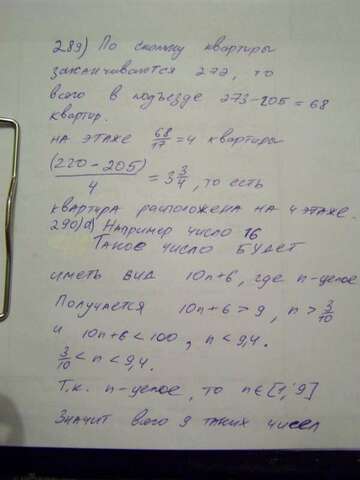 289) По скольку квартиры
заканчиваются 272, то
всего в подъезде 273-205=68
квартир.
на этаже 68/17=4 квартиры
(220-205)/4 = 3 3/4, то есть
квартира расположена на 4 этаже.
290)а) Например число 16
Такое число будет
иметь вид 10n+6, где n-целое
Получается 10n+6>9, n>3/10
и 10n+6<100, n<9,4.
3/10<n<9,4.
Т.к. n-целое, то n∈[1;9]
Значит всего 9 таких чисел